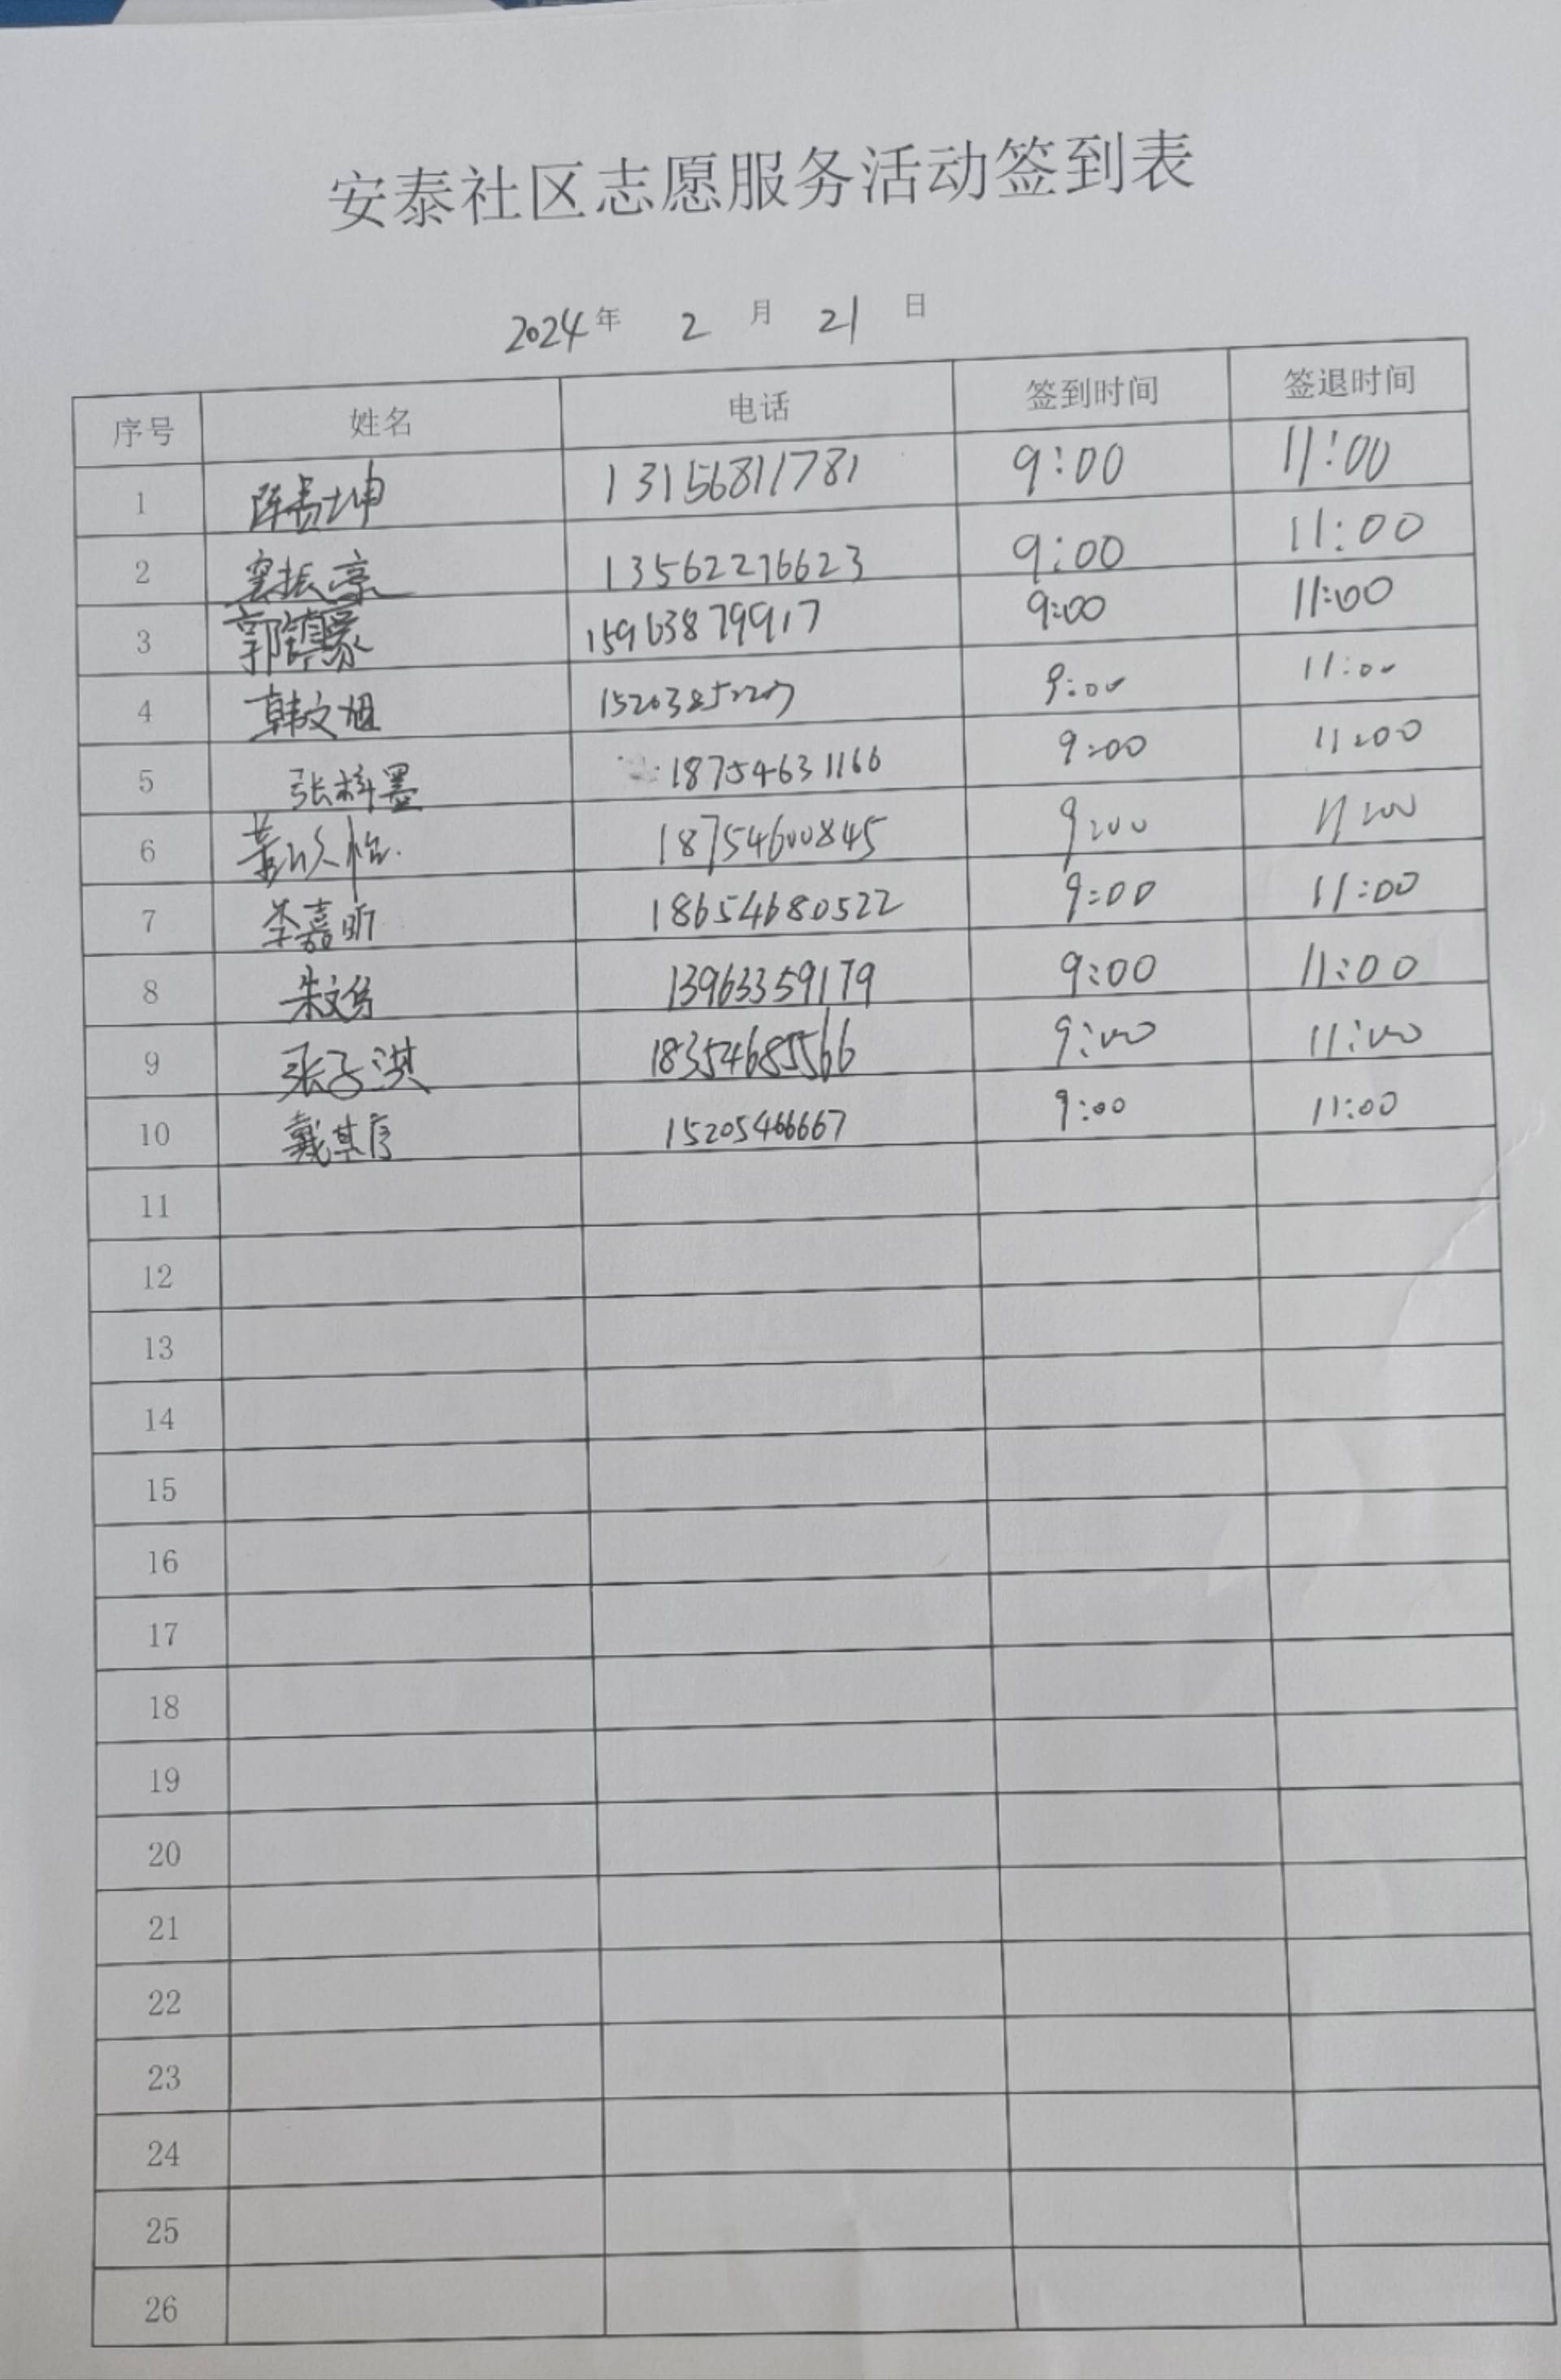 安泰社区志愿服务活动签到表
2024年 2 月 21 日
序号 姓名 电话 签到时间 签退时间
1 陈贵坤 13156811781 9:00 11:00
2 13562276623 9:00 11:00
3 郭镇豪 15963879917 9:00 11:00
4 韩文旭 9:00 11:00
5 张梓墨 18754631166 9:00 11:00
6 18754600845 9:00 11:00
7 李嘉昕 18654680522 9:00 11:00
8 朱文 13963359179 9:00 11:00
9 张子淇 18354685566 9:00 11:00
10 戴其序 15205466667 9:00 11:00
11
12
13
14
15
16
17
18
19
20
21
22
23
24
25
26